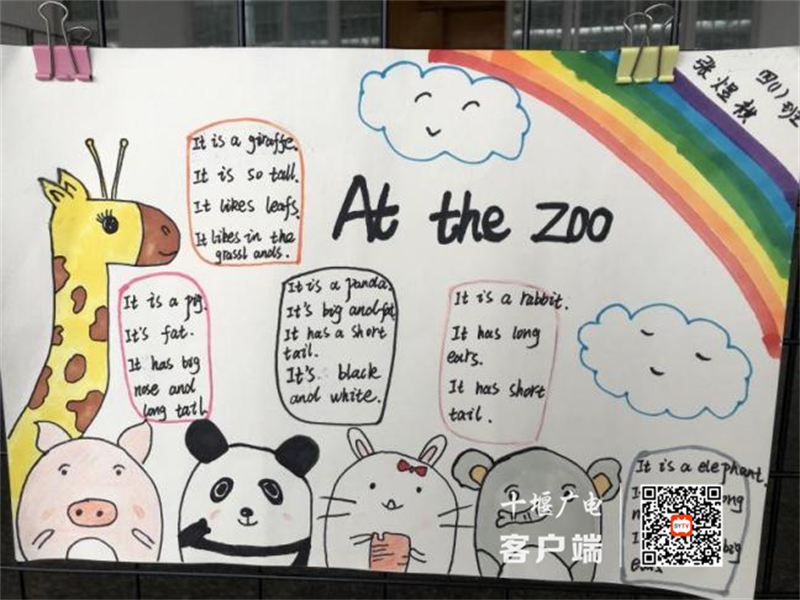 四(1)班
张煜棋
At the zoo
It is a giraffe.
It is so tall.
It likes leafs.
It likes in the
grassl ands.
It is a pig.
It's fat.
It has big
nose and
long tail.
It is a panda.
It's big and fat
It has a short
tail.
It's black
and white.
It is a rabbit.
It has long
ears.
It has short
tail.
It is a elephant.
ong
big
ears
十堰广电
客户端